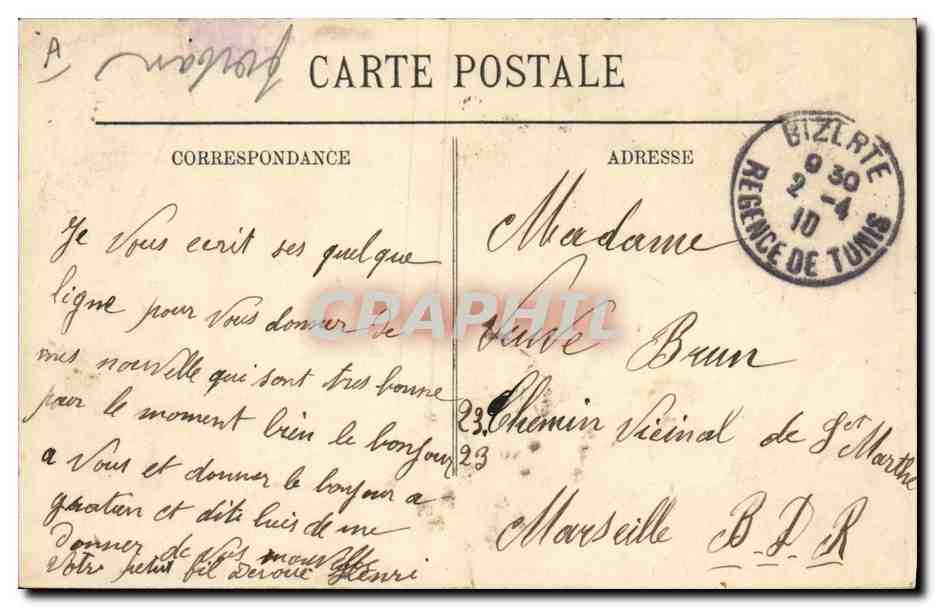 A
CARTE POSTALE
CORRESPONDANCE
ADRESSE
BIZERTE
9 30
2 -4
10
REGENCE DE TUNIS
Je Vous ecrit ses quelque
ligne pour Vous donner de
mes nouvelle qui sont tres bonne
pour le moment bien le bonjour
a Vous et donner le bonjour a
gratien et dite luis de me
donner de Vos nouvelle
Votre petit fil Henri
Madame
Veuve Brun
23. Chemin Vicinal de Ste Marthe
23
Marseille B.D.R
CRAPHIL